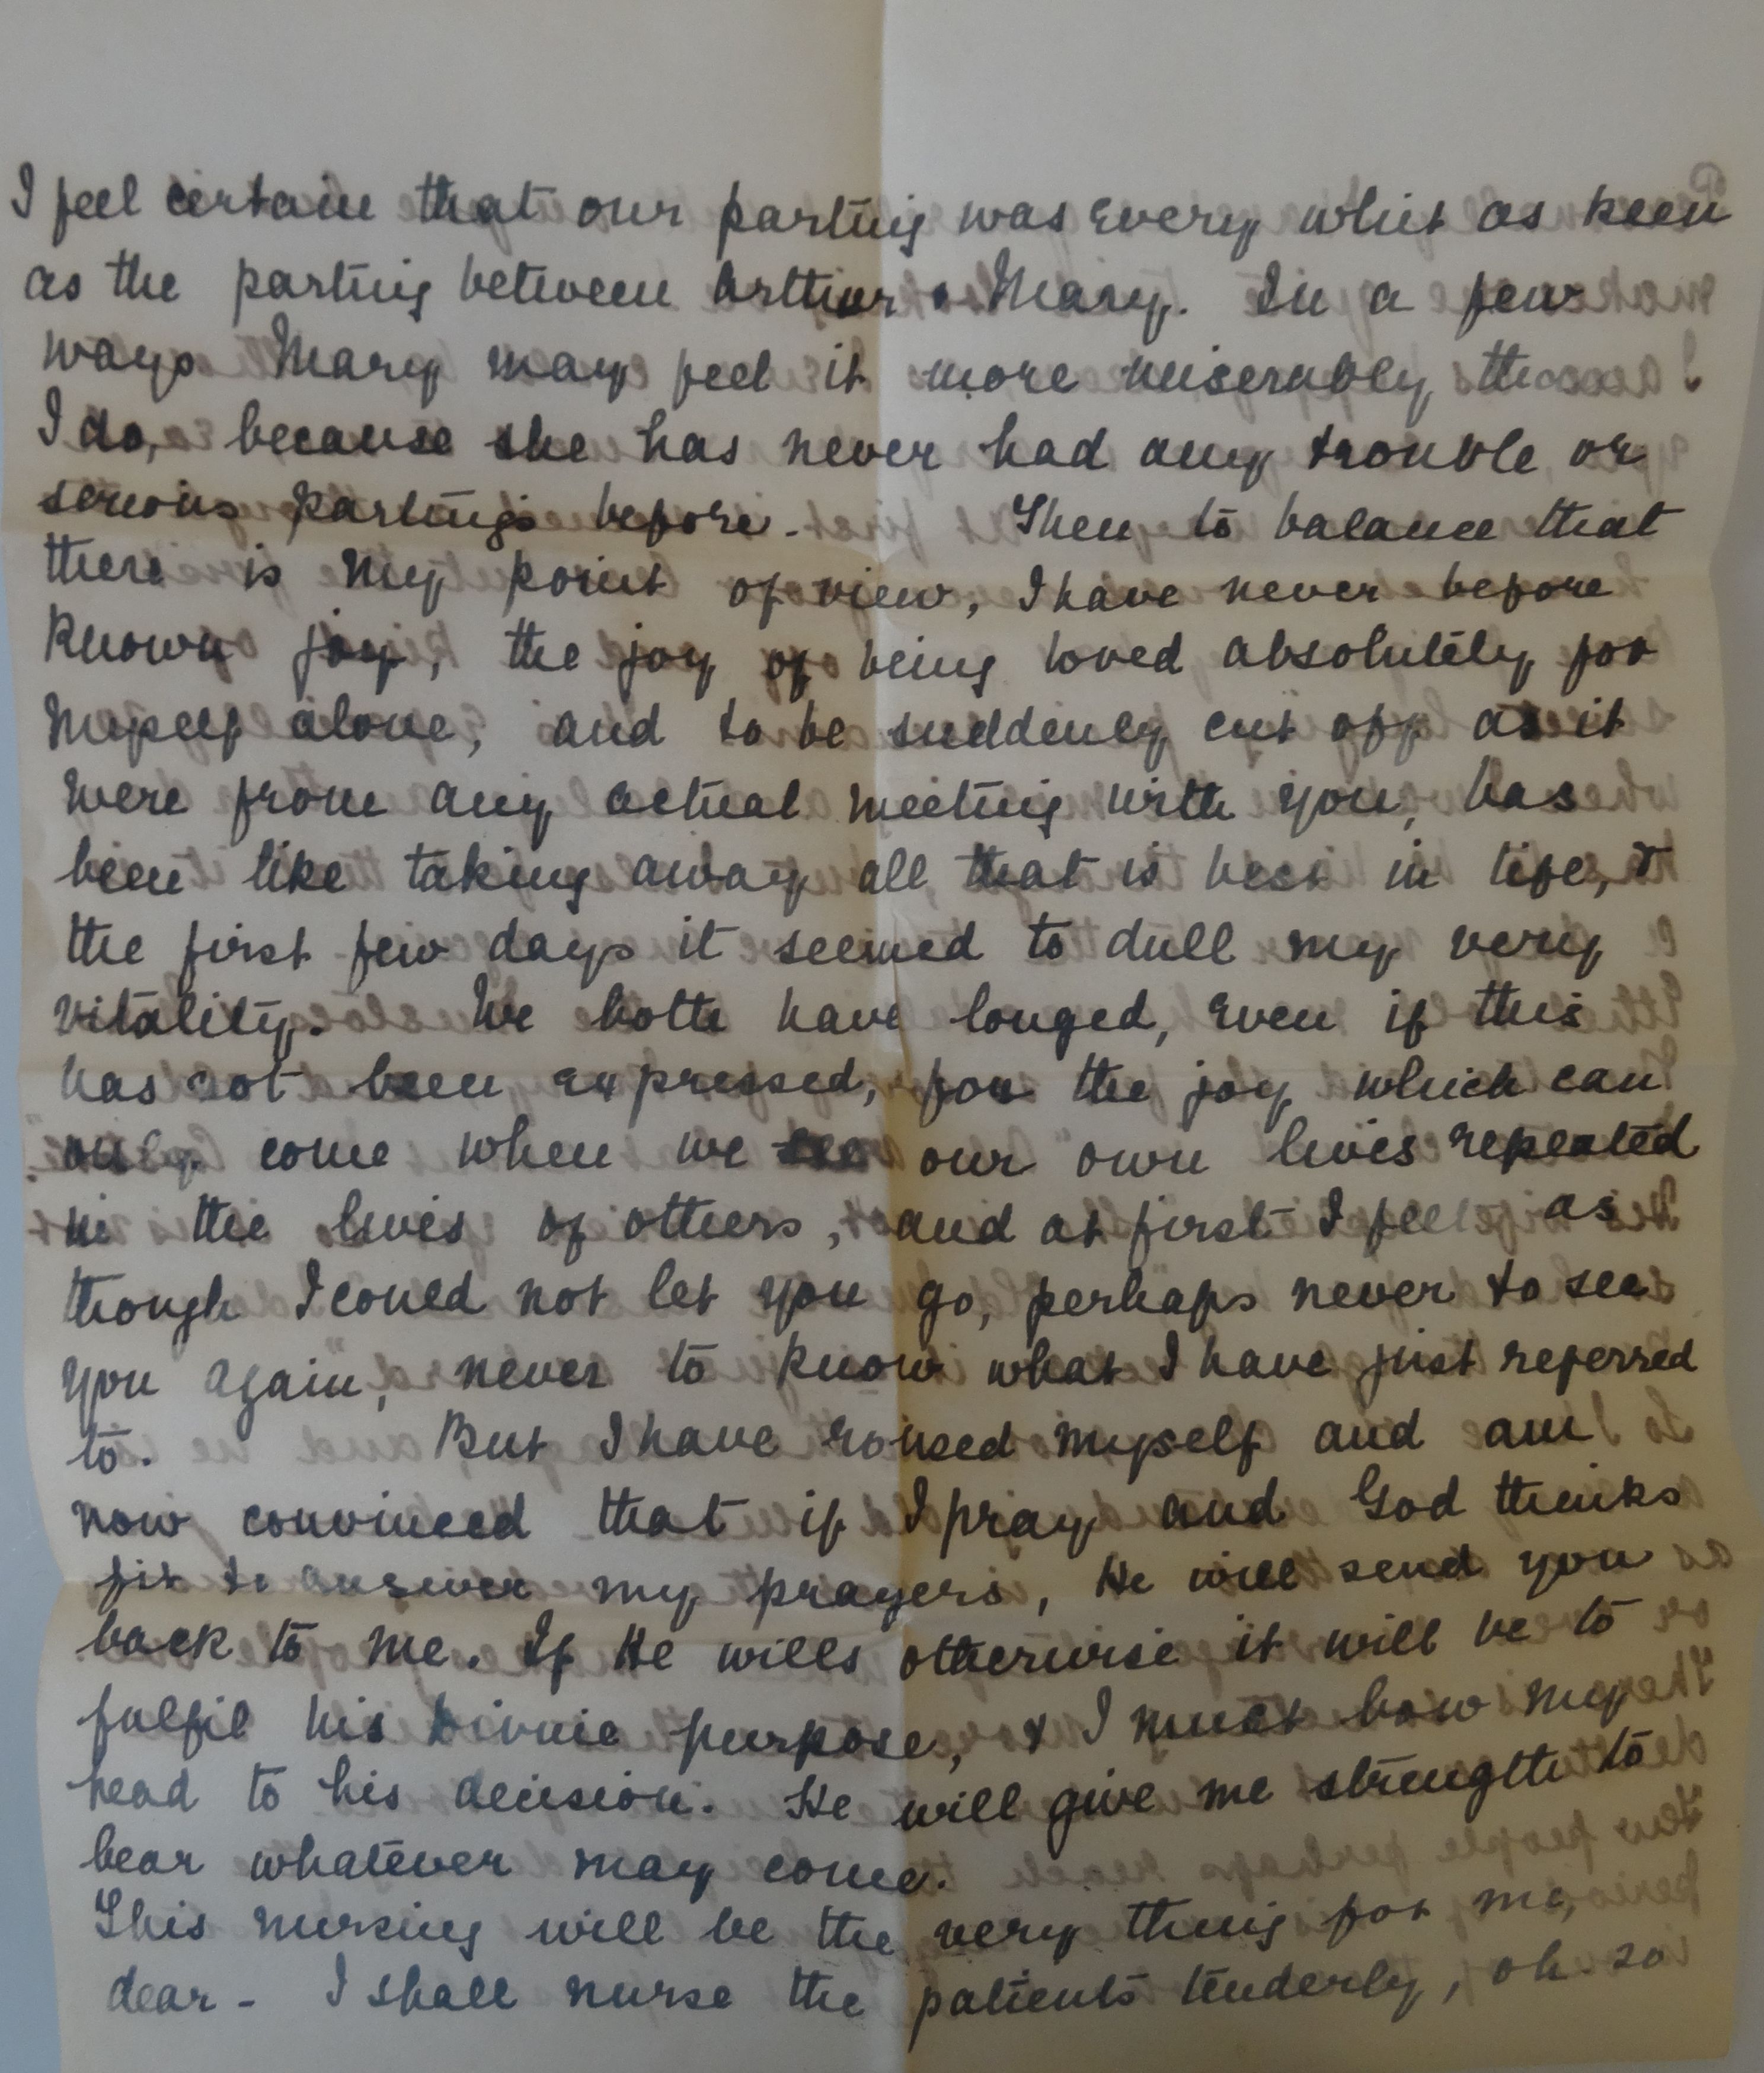 I feel certain that our parting was every whit as keen
as the parting between Arthur & Mary. In a few
ways Mary may feel it more miserably than
I do, because she has never had any trouble or
serious partings before. Then to balance that
there is my point of view, I have never before
known joy, the joy of being loved absolutely for
myself alone, and to be suddenly cut off as it
were from any actual meeting with you, has
been like taking away all that is best in life, &
the first few days it seemed to dull my very
vitality. We both have longed, even if this
has not been expressed, for the joy which can
only come when we see our own lives repeated
in the lives of others, and at first I feel as
though I could not let you go, perhaps never to see
you again, never to know what I have just referred
to. But I have roused myself and am
now convinced that if I pray and God thinks
fit to answer my prayers, He will send you
back to me. If He wills otherwise it will be to
fulfil his Divine purpose, & I must bow my
head to his decision. He will give me strength to
bear whatever may come.
This nursing will be the very thing for me,
dear - I shall nurse the patients tenderly, oh so